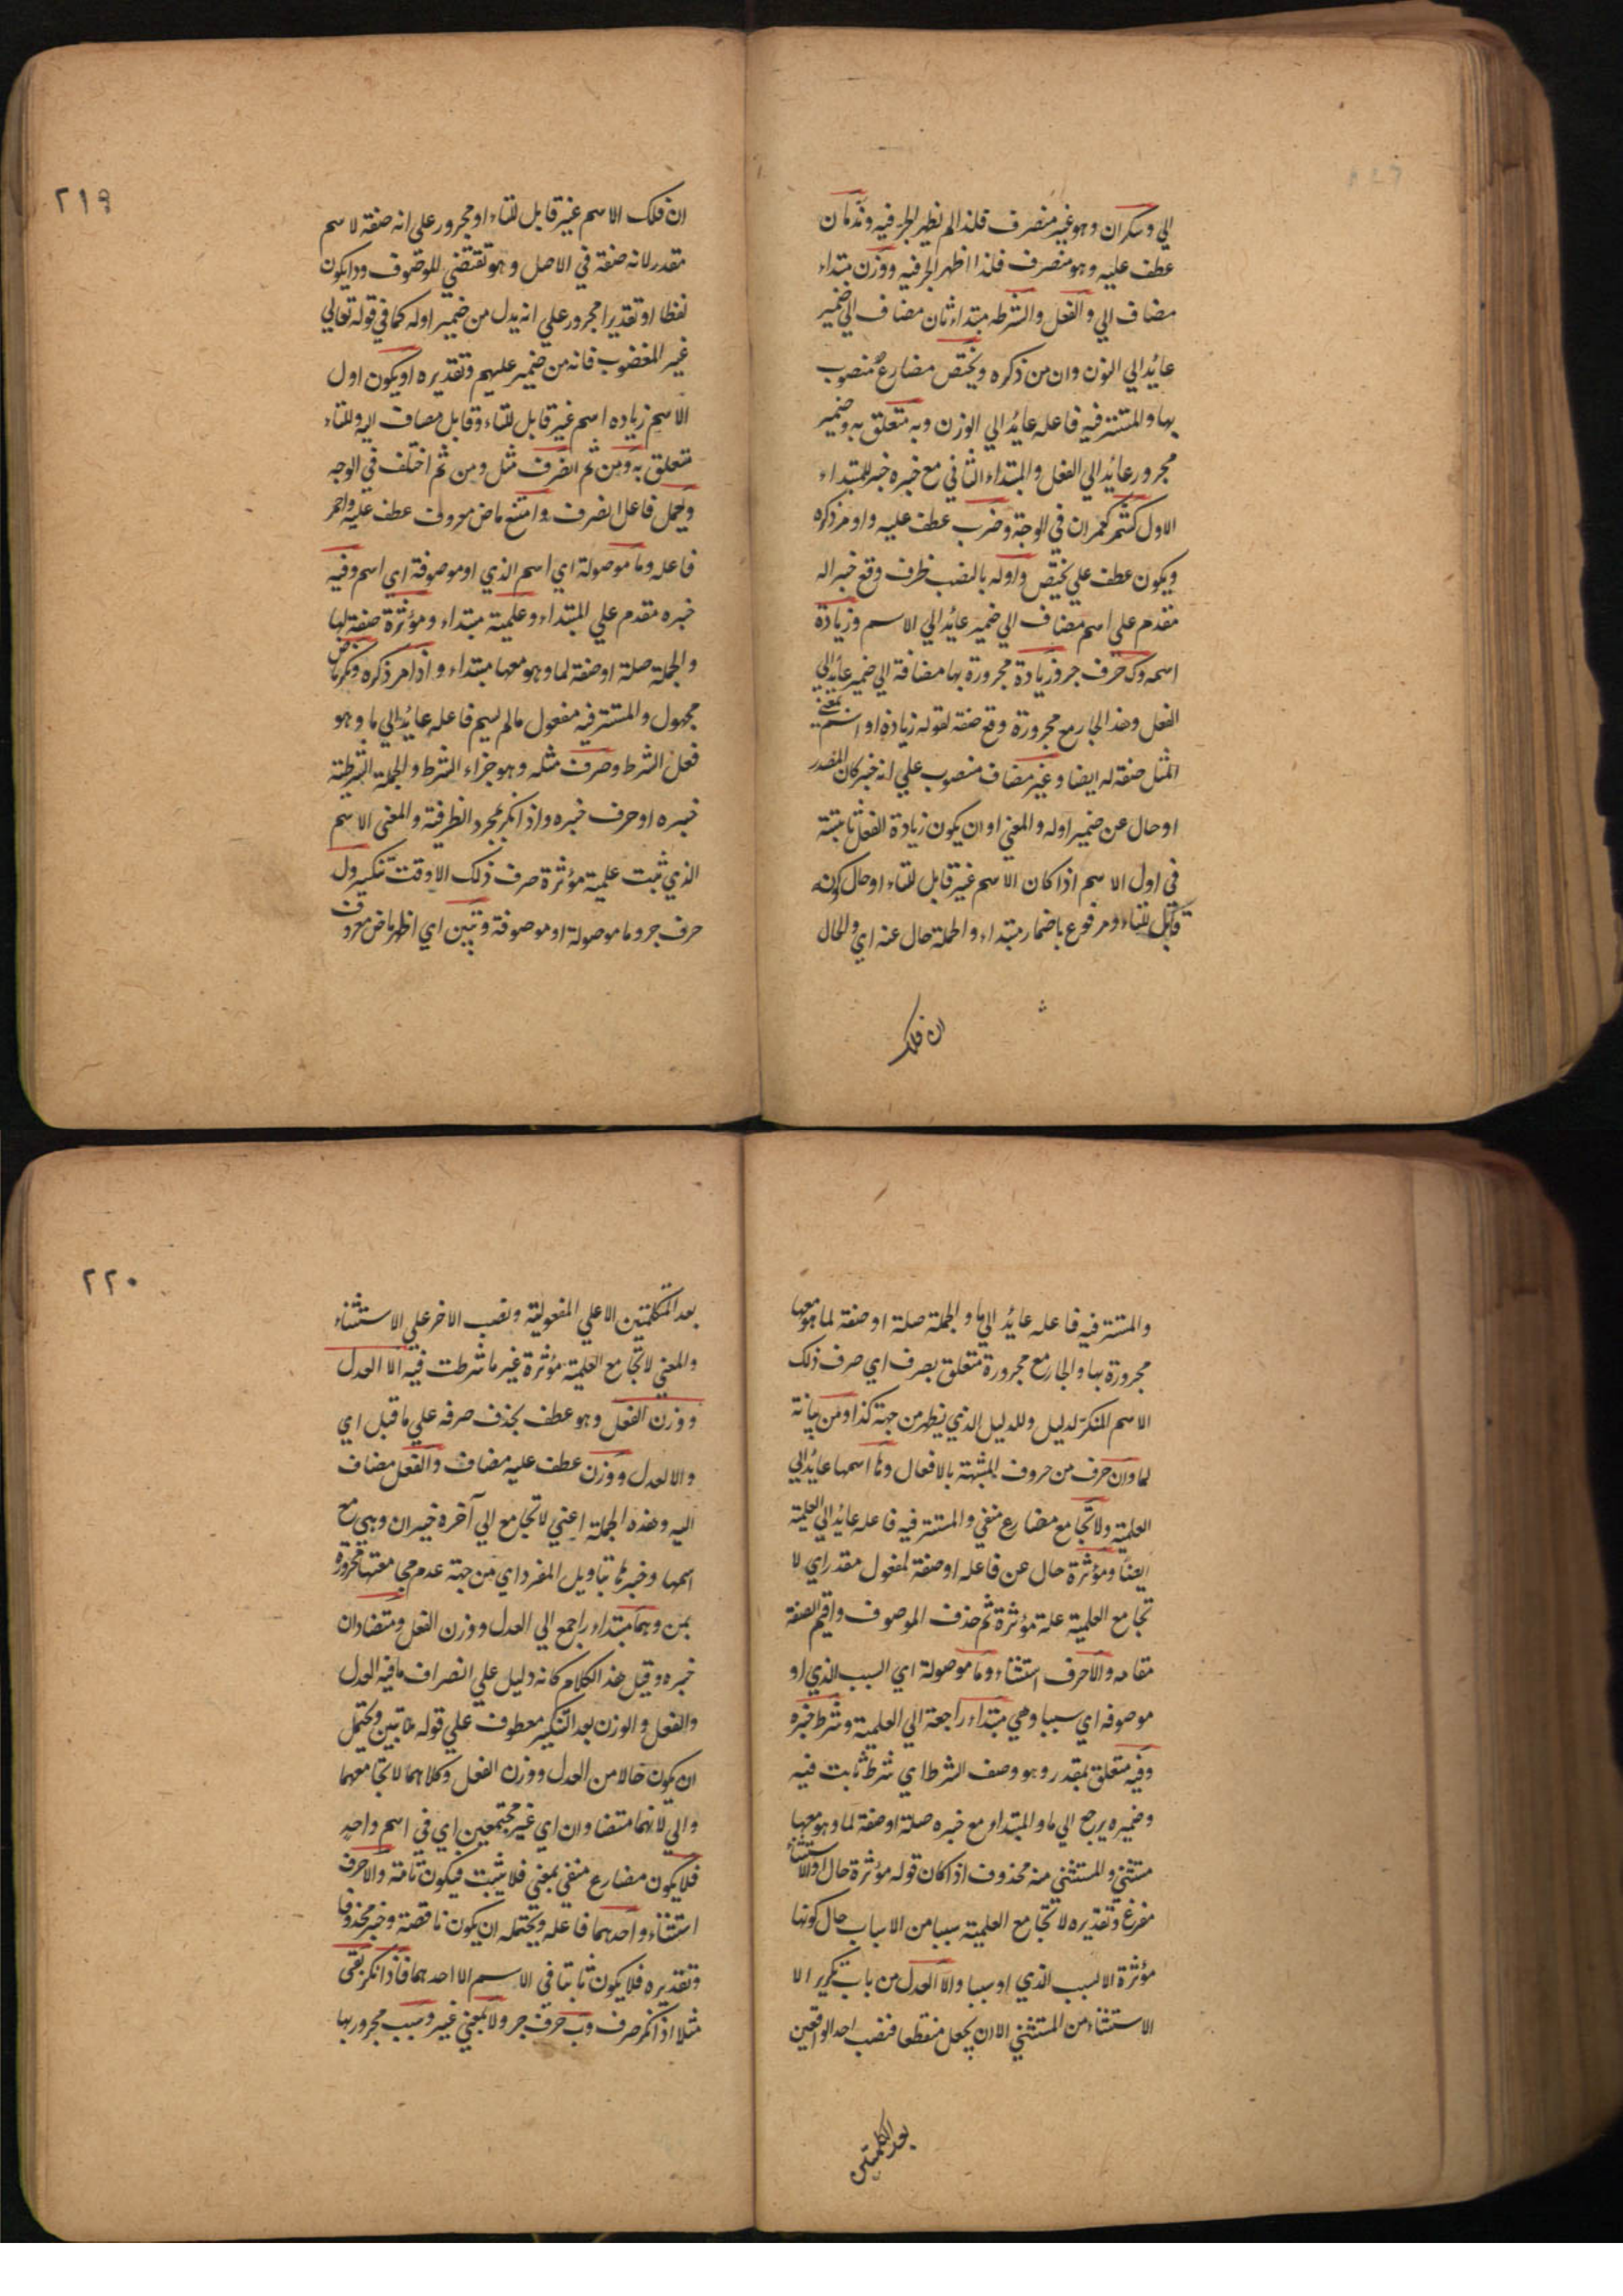 الي وسكران وهو غير منصرف فلذا لم يظهر الجر فيه وندمان
عطف عليه وهو منصرف فلذا اظهر الجر فيه ووزن مبتداء
مضاف الي والفعل والشرطه مبتداء ثان مضاف الي ضمير
عائد الي النون وان من ذكره ويختص مضارع منصوب
بها والمستتر فيه فاعله عائد الي الوزن وبه متعلق به وضمير
مجرور عائد الي الفعل والمبتداء الثاني مع خبره خبر للمبتداء
الاول كشمر كعمران في الوجه وضرب عطف عليه واو مر ذكره
ويكون عطف علي يختص واوله بالنصب ظرف وقع خبرا له
مقدم علي اسم مضاف الي ضمير عائد الي الاسم وزيادة
اسمه وك حرف جر وزيادة مجرورة بها مضافة الي ضمير عائد الي
الفعل وهذ الجار مع مجرورة وقع صفة لقوله زيادة او اسم بمعني
المثل صفة له ايضا وغير مضاف منصوب علي انه خبر كان المقدر
او حال عن ضمير اوله والمعني او ان يكون زيادة الفعل ثابتة
في اول الاسم اذا كان الاسم غير قابل للتاء او حال كونه
قابل للتاء ومرفوع باضمار مبتداء والجملة حال عنه اي والحال
ان فلك
٢١٩
ان فلك الاسم غير قابل للتاء او مجرور علي انه صفة لاسم
مقدر لانه صفة في الاصل وهو تقتضي للموصوف ودا يكون
لفظا او تقديرا مجرور علي انه بدل من ضمير اوله كما في قوله تعالي
غير المغضوب فانه من ضمير عليهم وتقديره او يكون اول
الاسم زياده اسم غير قابل للتاء وقابل مضاف اليه وللتاء
متعلق به ومن ثم انصرف مثل ومن ثم اختلف في الوجه
ويعمل فاعل انصرف وامتنع ماض معروف عطف عليه واحمر
فاعله وما موصولة اي اسم الذي او موصوفة اي اسم وفيه
خبره مقدم علي المبتداء وعلمية مبتداء ومؤثرة صفة لها
والجملة صلة او صفة لما وهو معها مبتداء واذا مر ذكره ونكر ماض
مجهول والمستتر فيه مفعول مالم يسم فاعله عائد الي ما وهو
فعل الشرط وصرف مثله وهو جزاء الشرط والجملة الشرطية
خبره او حرف خبره واذا نكر بمجرد الظرفية والمعني الاسم
الذي ثبت علمية مؤثرة صرف ذلك الا وقت تنكير ول
حرف جر وما موصولة او موصوفة وتبين اي اظهر ماض معروف
والمستتر فيه فاعله عائد الي ما والجملة صلة او صفة لما هو معها
مجرورة بها والجار مع مجرورة متعلق بصرف اي صرف ذلك
الاسم المنكر لدليل وللدليل الذي يظهر من جهة كذا ومن بيانة
لما وان حرف من حروف المشبهة بالافعال وها اسمها عائد الي
العلمية ولا تجامع مضارع منفي والمستتر فيه فاعله عائد الي العلمية
ايضا ومؤثرة حال عن فاعله او صفة لمفعول مقدر اي لا
تجامع العلمية علة مؤثرة ثم حذف الموصوف واقيم الصفة
مقامه والا حرف استثناء وما موصولة اي السبب الذي او
موصوفه اي سببا وهي مبتداء راجعة الي العلمية وشرط خبره
وفيه متعلق بمقدر وهو وصف الشرط اي شرط ثابت فيه
وضميره يرجع الي ما والمبتداء مع خبره صلة او صفة لما وهو معها
مستثني والمستثني منه محذوف اذا كان قوله مؤثرة حال او الاستثناء
مفرغ وتقديره لا تجامع العلمية سببا من الاسباب حال كونها
مؤثرة الا لسبب الذي او سببا والا العدل من باب تكرير الا
الاستثناء من المستثني الا ان يجعل منقطعا فنصب احد الواقعين
بعد الكلمتين
٢٢٠
بعد المكلمتين الا علي المفعولية ونصب الاخر علي الاستثناء
والمعني لا تجامع العلمية مؤثرة غير ما شرطت فيه الا العدل
ووزن الفعل وهو عطف بحذف صرفه علي ما قبل اي
والا العدل ووزن عطف عليه مضاف والفعل مضاف
اليه وهذه الجملة اعني لا تجامع الي آخره خبر ان وهي مع
اسمها وخبرها بتاويل المفرد اي من جهة عدم مجامعتها مجرورة
بمن وهما مبتداء راجع الي العدل ووزن الفعل ومتضادان
خبره وقيل هذ الكلام كانه دليل علي انصراف ما فيه العدل
والفعل والوزن بعد التنكير معطوف علي قوله لما تبين ويحتمل
ان يكون حالا من العدل ووزن الفعل وكلاهما لا تجامعهما
والي لانهما متضادان اي غير مجتمعين اي في اسم واحد
فلا يكون مضارع منفي بمعني فلا يثبت فيكون تامة والا حرف
استثناء واحدهما فاعله ويحتمله ان يكون ناقصة وخبره محذوفا
وتقديره فلا يكون ثابتا في الاسم الا احدهما فاذا نكر بقي
مثلا اذا نكر صرف وب حرف جر ولا بمعني غير وسبب مجرور بها